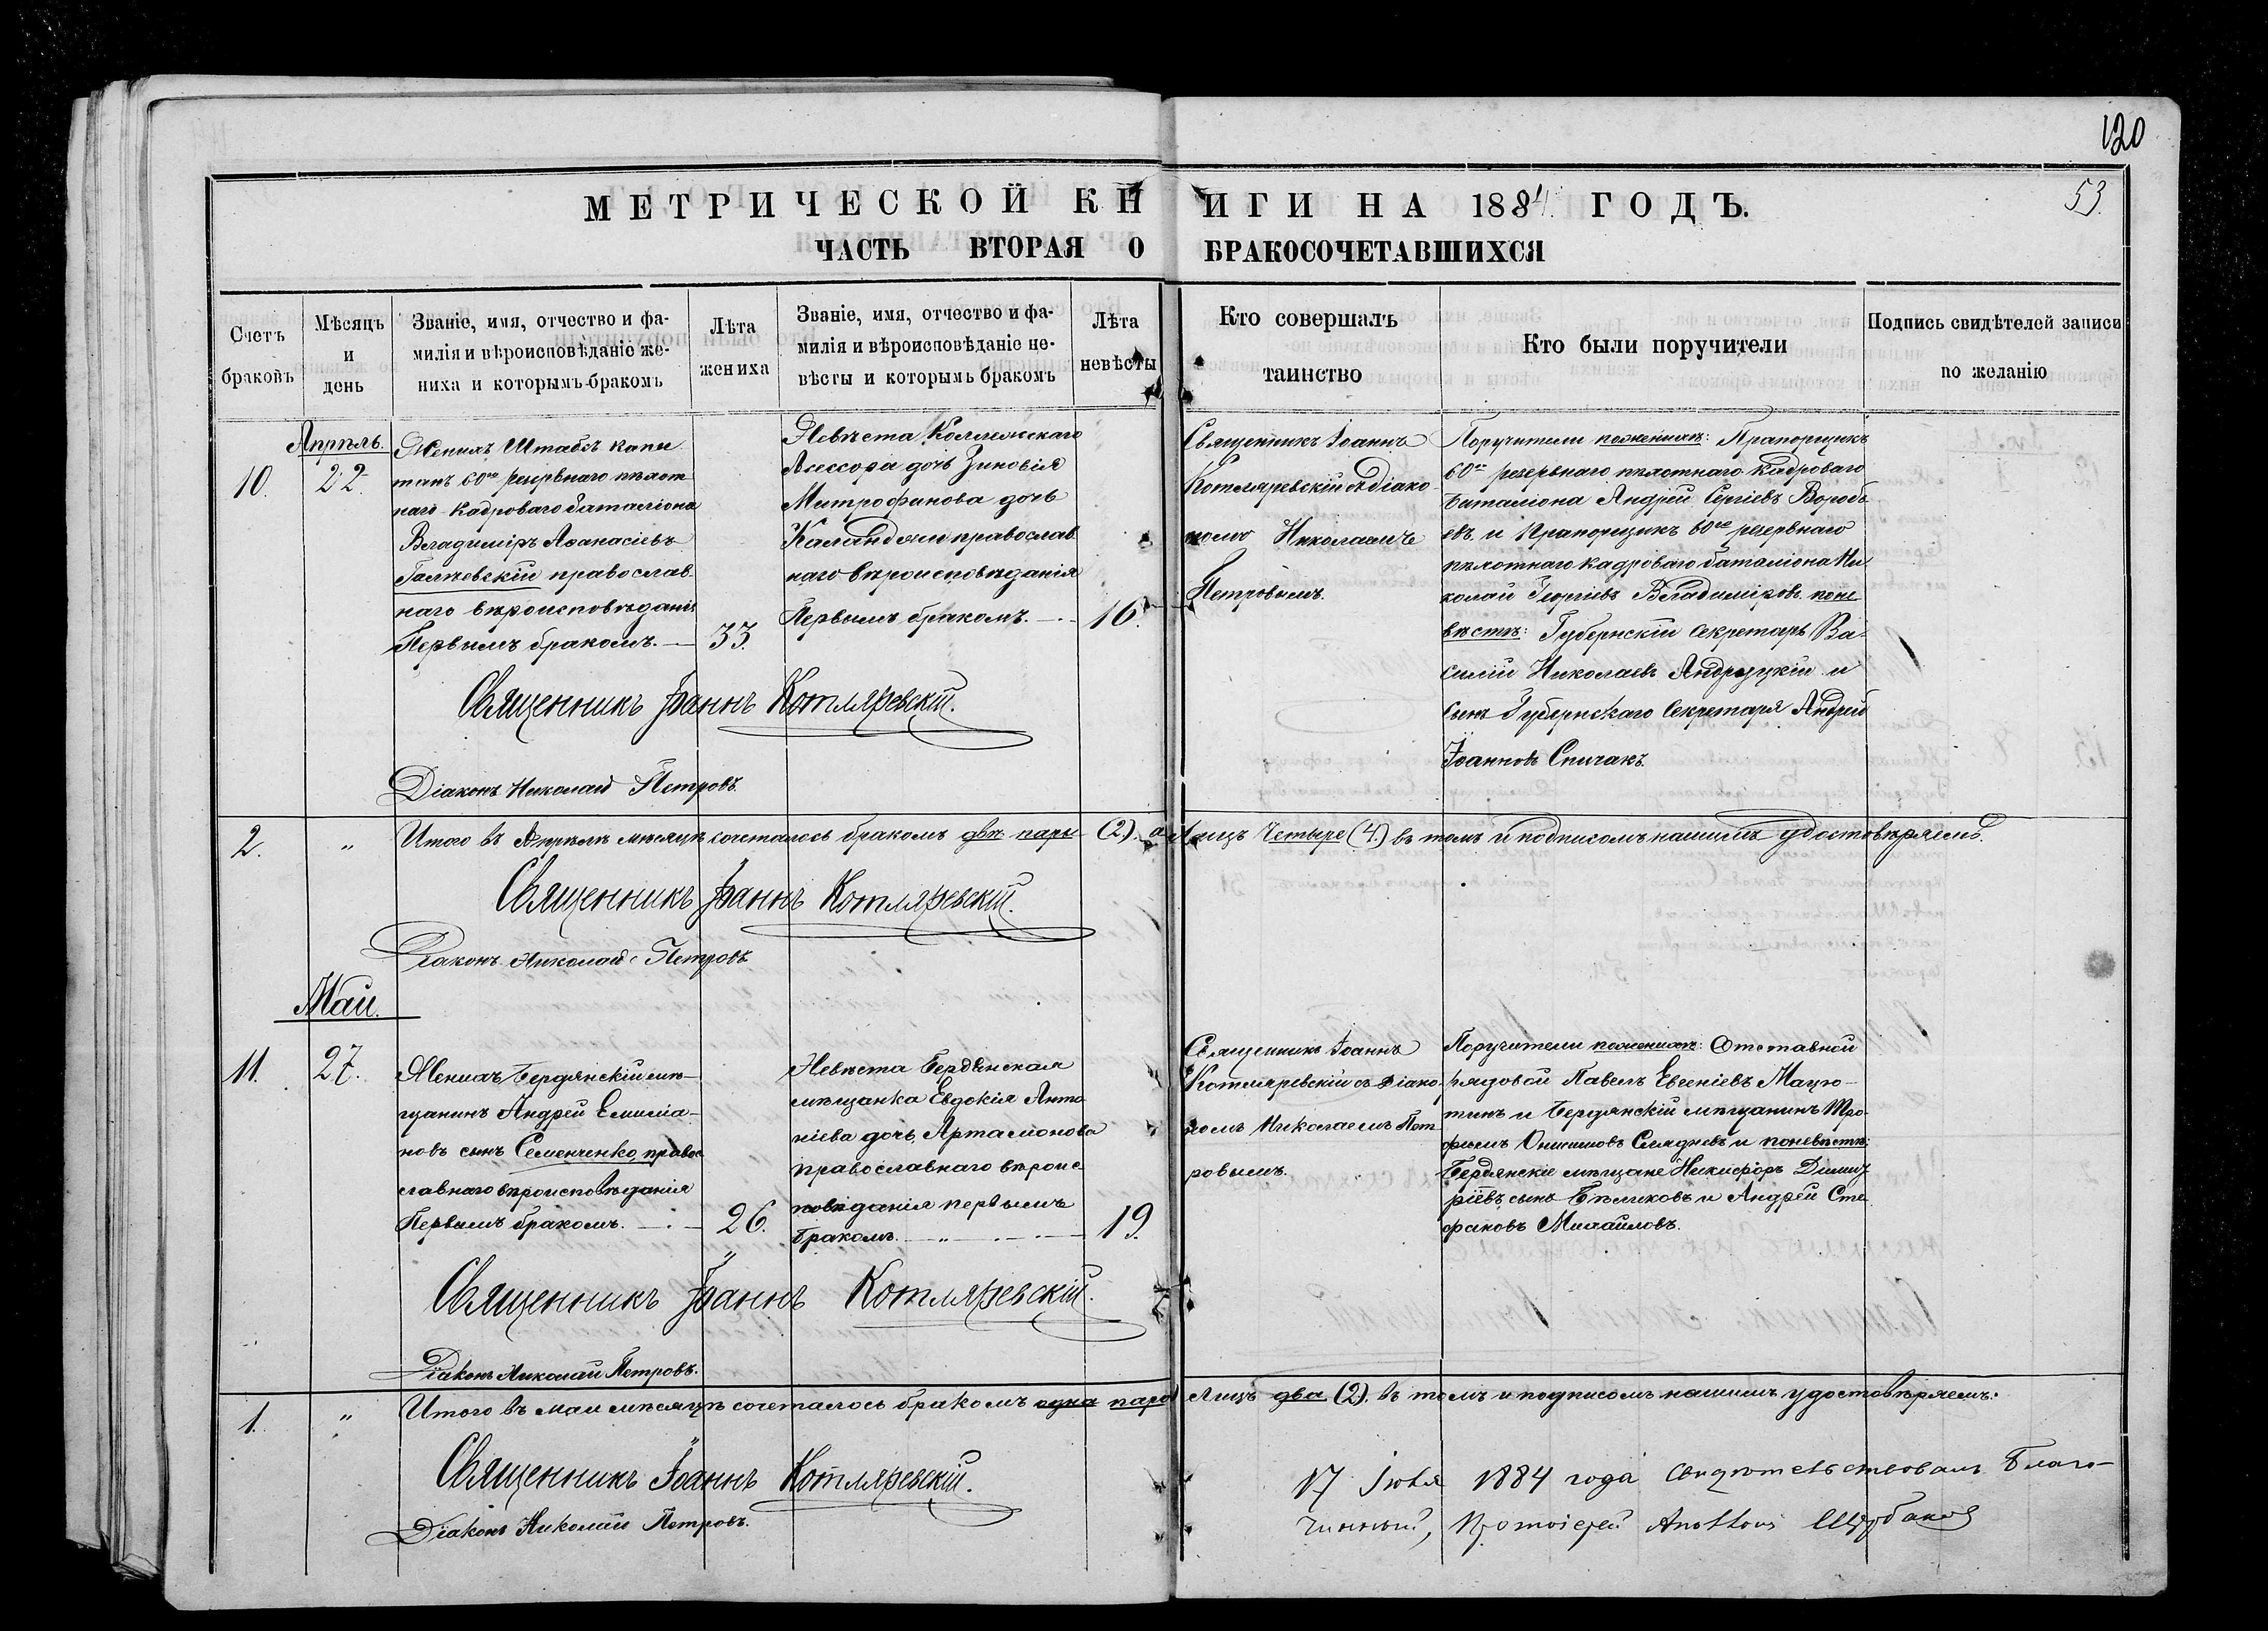 120
53.
МЕТРИЧЕСКОЙ КНИГИ НА 1884 ГОДЪ.
ЧАСТЬ ВТОРАЯ О БРАКОСОЧЕТАВШИХСЯ
Счетъ
браковъ
Мѣсяцъ
и
день
Званіе, имя, отчество и фа-
милія и вѣроисповѣданіе же-
ниха и которымъ бракомъ
Лѣта
жениха
Званіе, имя, отчество и фа-
милія и вѣроисповѣданіе не-
вѣсты и которымъ бракомъ
Лѣта
невѣсты
Кто совершалъ
таинство
Кто были поручители
Подпись свидѣтелей записи
по желанію
10.
Апрѣль.
22.
Женихъ Штабсъ капи
танъ 60го резервнаго пѣхот
наго кадроваго баталіона
Владиміръ Аѳанасіевъ
Галѣевскій православ
наго вѣроисповѣданія
Первымъ бракомъ.
33.
Невѣста Коллежскаго
Асессора дочь Зиновія
Митрофанова дочь
православ
наго вѣроисповѣданія
Первымъ бракомъ.
16.
Священникъ Іоаннъ
Котляревскій съ діако
номъ Николаемъ
Петровымъ.
Поручители пожениху: Прапорщикъ
60го резервнаго пѣхотнаго кадроваго
баталіона Андрей Сергіевъ Воробь
евъ и Прапорщикъ 60го резервнаго
пѣхотнаго кадроваго баталіона Ни
колай Георгіевъ Владиміровъ поне
вѣстѣ: Губернскій Секретарь Ва-
силій Николаевъ Андруцкій и
сынъ Губернскаго Секретаря Андрей
Іоанновъ Спичакъ.
Священникъ Іоаннъ Котляревскій.
Діаконъ Николай Петровъ.
2.
"
Итого въ Апрѣлѣ мѣсяцѣ сочеталось бракомъ двѣ пары (2). а лицъ Четыре (4.) въ томъ и подписомъ нашимъ удостовѣряемъ.
Священникъ Іоаннъ Котляревскій.
Діаконъ Николай Петровъ.
Май.
11.
27.
Женихъ Бердянскій мѣ-
щанинъ Андрей Емиліа-
новъ сынъ Семенченко, право
славнаго вѣроисповѣданія
Первымъ бракомъ.
26.
Невѣста Бердянская
мѣщанка Евдокія Анто
ніева дочь Артамонова
православнаго вѣроис
повѣданія первымъ
бракомъ.
19.
Священникъ Іоаннъ
Котляревскій съ Діако
номъ Николаемъ Пет
ровымъ.
Поручители пожениху: Отставной
рядовой Павелъ Евгеніевъ Мацю-
тинъ и Бердянскій мѣщанинъ Тро-
фимъ Онисимовъ Слядневъ и поневѣстѣ:
Бердянскіе мѣщане Никифоръ Димит
ріевъ сынъ Бѣликовъ и Андрей Сте
фановъ Михайловъ.
Священникъ Іоаннъ Котляревскій.
Діаконъ Николай Петровъ.
1.
"
Итого въ маи мѣсяцѣ сочеталось бракомъ одна пара лицъ два (2). въ томъ и подписомъ нашимъ удостовѣряемъ:
Священникъ Іоаннъ Котляревскій.
Діаконъ Николай Петровъ.
17 Іюля 1884 года свидѣтельствовалъ Благо-
чинный, Протоіерей Щербаковъ